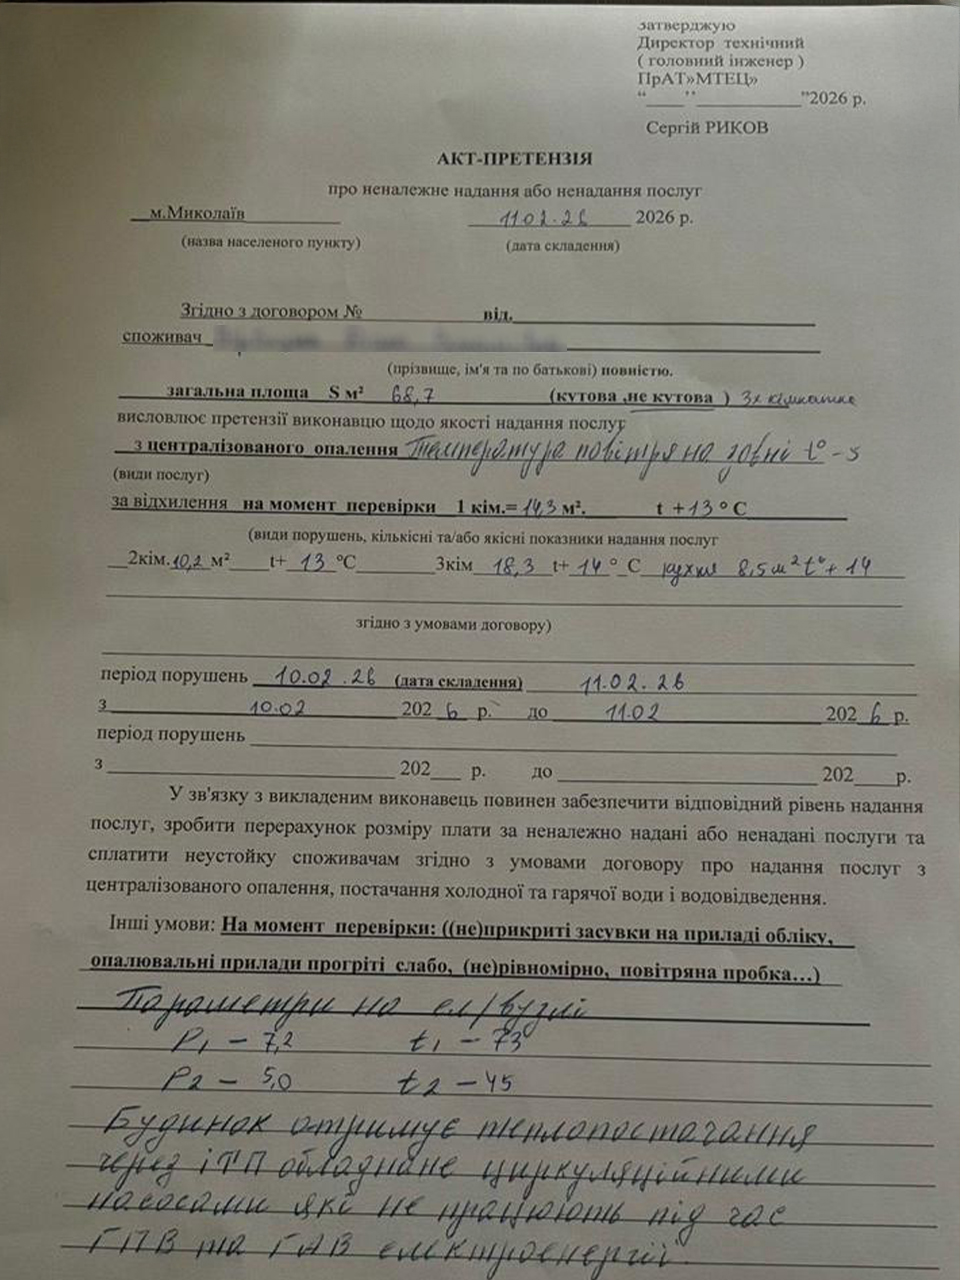 затверджую
Директор технічний
( головний інженер )
ПрАТ»МТЕЦ»
“____’’___________”2026 р.
Сергій РИКОВ
АКТ-ПРЕТЕНЗІЯ
про неналежне надання або ненадання послуг
м.Миколаїв 11 02.26 2026 р.
(назва населеного пункту) (дата складення)
Згідно з договором № від.
споживач
(прізвище, ім'я та по батькові) повністю.
загальна площа S м² 68,7 (кутова ,не кутова ) 3х кімнатна
висловлює претензії виконавцю щодо якості надання послуг
з централізованого опалення Температура повітря на зовні t° -5
(види послуг)
за відхилення на момент перевірки 1 кім.= 14,3 м². t +13 ° C
(види порушень, кількісні та/або якісні показники надання послуг
2кім. 10,2 м² t+ 13 °C 3кім 18,3 t+ 14 ° C кухня 8,5 м² t°+ 14
згідно з умовами договору)
період порушень 10.02.26 (дата складення) 11.02.26
з 10.02 202 6 р. до 11.02 202 6 р.
період порушень
з 202 р. до 202 р.
У зв'язку з викладеним виконавець повинен забезпечити відповідний рівень надання
послуг, зробити перерахунок розміру плати за неналежно надані або ненадані послуги та
сплатити неустойку споживачам згідно з умовами договору про надання послуг з
централізованого опалення, постачання холодної та гарячої води і водовідведення.
Інші умови: На момент перевірки: ((не)прикриті засувки на приладі обліку,
опалювальні прилади прогріті слабо, (не)рівномірно, повітряна пробка…)
Параметри на ел/вузлі
P1 – 7,2 t1 – 73
P2 – 5,0 t2 – 45
Будинок отримує теплопостачання
через іТП обладнане циркуляційними
насосами які не працюють під час
ГПВ та ГАВ електроенергії.